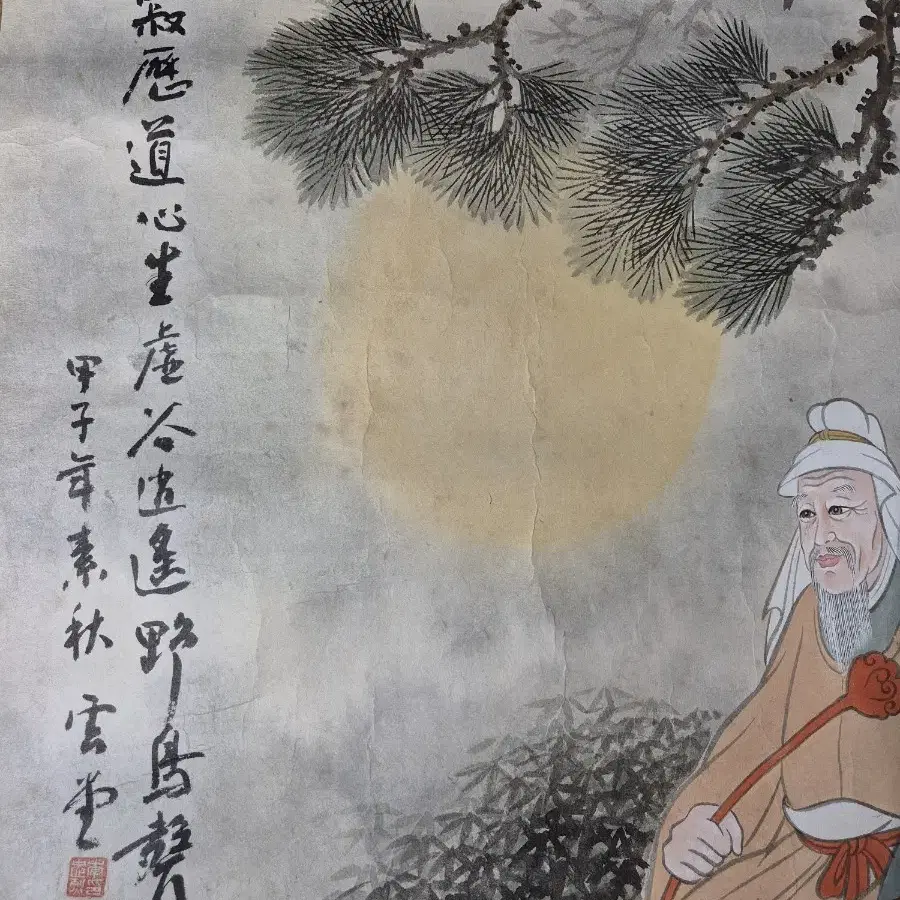 寂歷道心生虛谷逍遙野鳥聲
甲子年素秋 雲堂